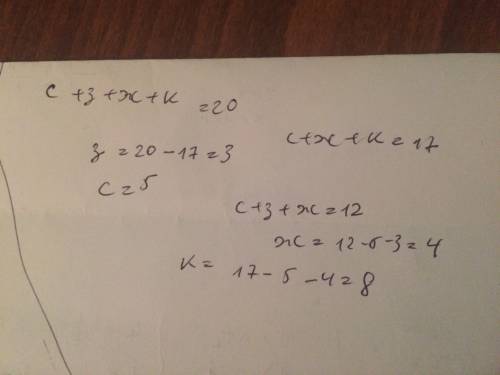 с + з + ж + к = 20
з = 20 - 17 = 3
с + ж + к = 17
с = 5
с + з + ж = 12
ж = 12 - 5 - 3 = 4
к = 17 - 5 - 4 = 8